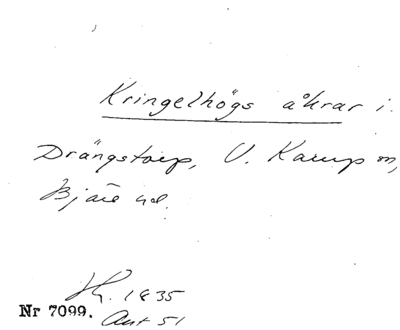 Kringelhögs åkrar i
Drängstorp, V. Karup sn,
Bjäre hd.
Hy. 1835
Nr 7099. Akt 51